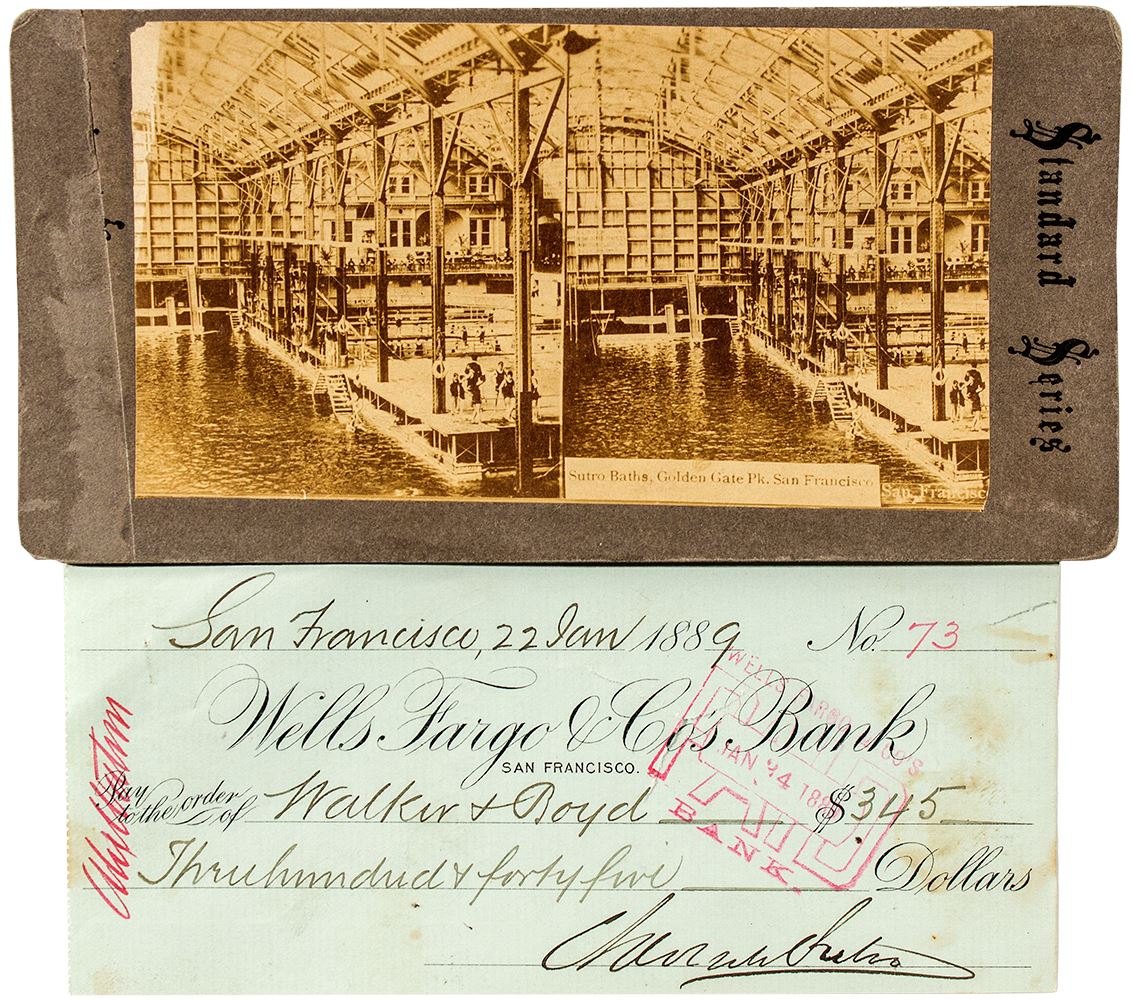 Standard Series
Sutro Baths, Golden Gate Pk. San Francisco
San Francisco
San Francisco, 22 Jan 1889 No. 73
Wells Fargo & Co's Bank
SAN FRANCISCO.
Pay to the order of Walker & Boyd $345
Three hundred & forty five Dollars
WELLS FARGO & CO'S
PAID
JAN 24 1889
BANK.
Adolph Sutro